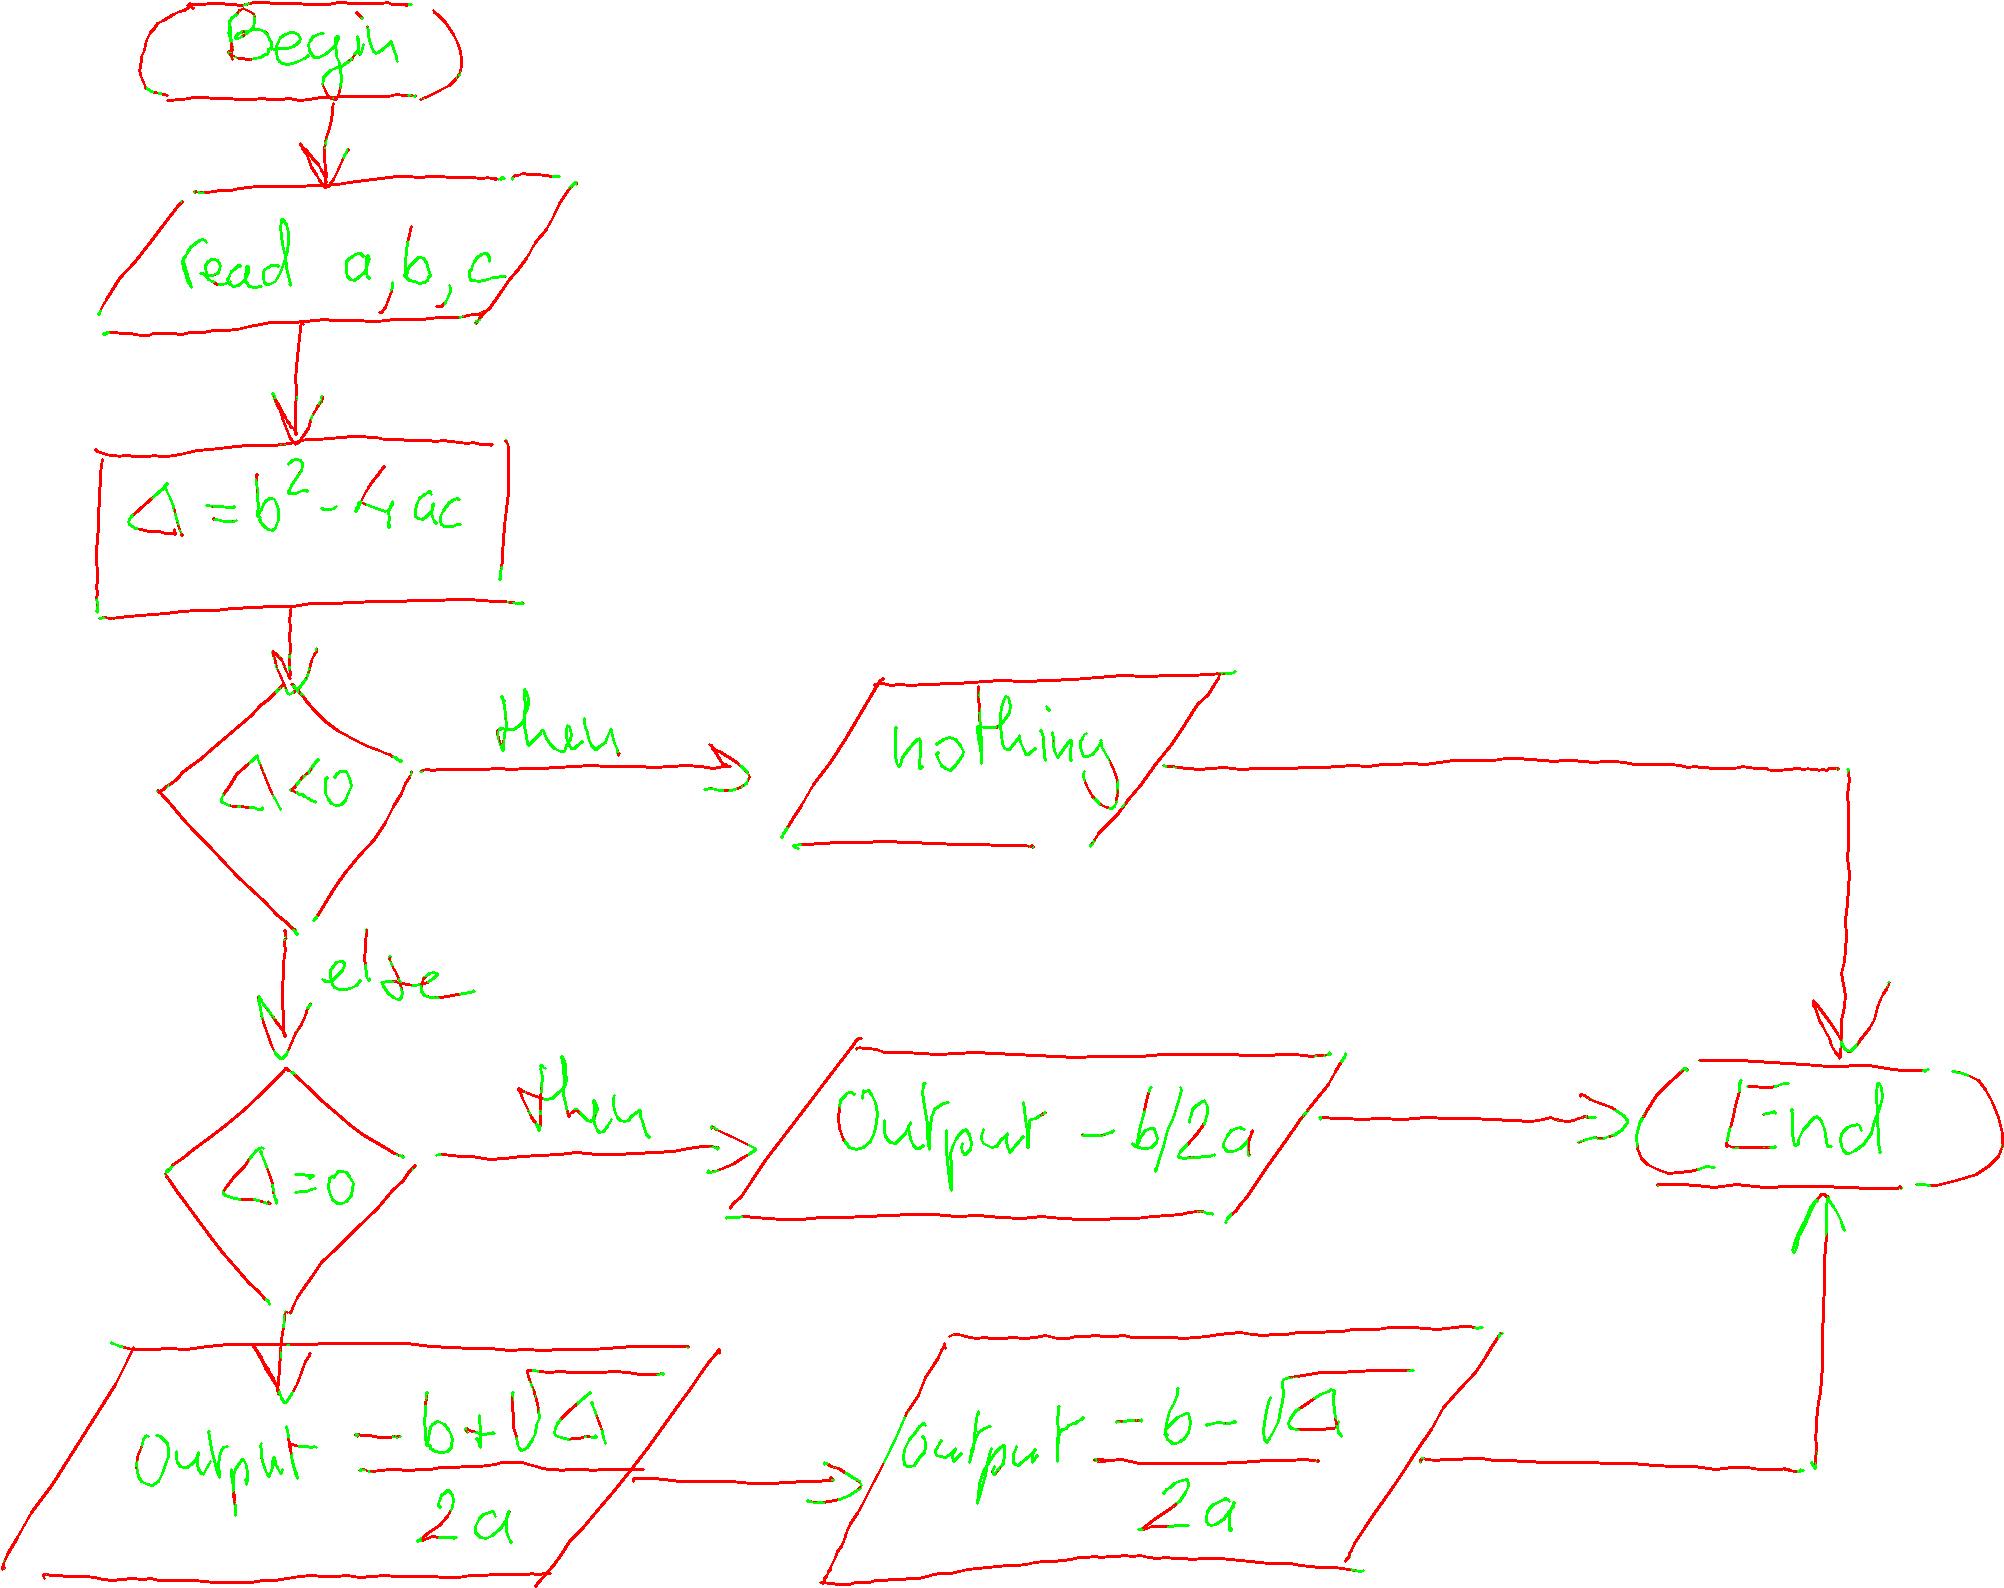 Begin
read a,b,c
Δ = b² - 4ac
Δ<0
then
nothing
else
Δ=0
then
Output - b/2a
End
Output (-b+√Δ)/2a
Output (-b-√Δ)/2a